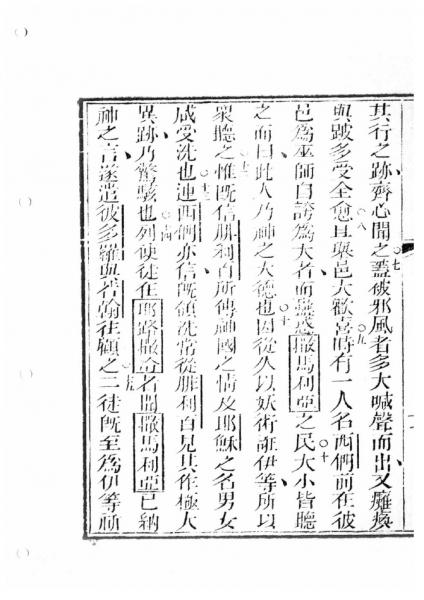 其行之跡齊心聞之七蓋被邪風者多大喊聲而出又癱瘓
與跛多受全愈八且邑大歡喜九時有一人名西們前在彼
邑為巫師自誇為大者而蠱惑撒馬利亞之民十大小皆聽
之而曰此人乃神之大德也十一因從久以妖術誑伊等所以
衆聽之十二惟既信腓利百所傳神國之情及耶穌之名男女
咸受洗也十三連西們亦信既領洗常從腓利百見其作極大
異跡乃驚駭也十四列使徒在耶路撒冷者聞撒馬利亞已納
神之言遂遣彼多羅與若翰往顧之十五二徒既至為伊等祈